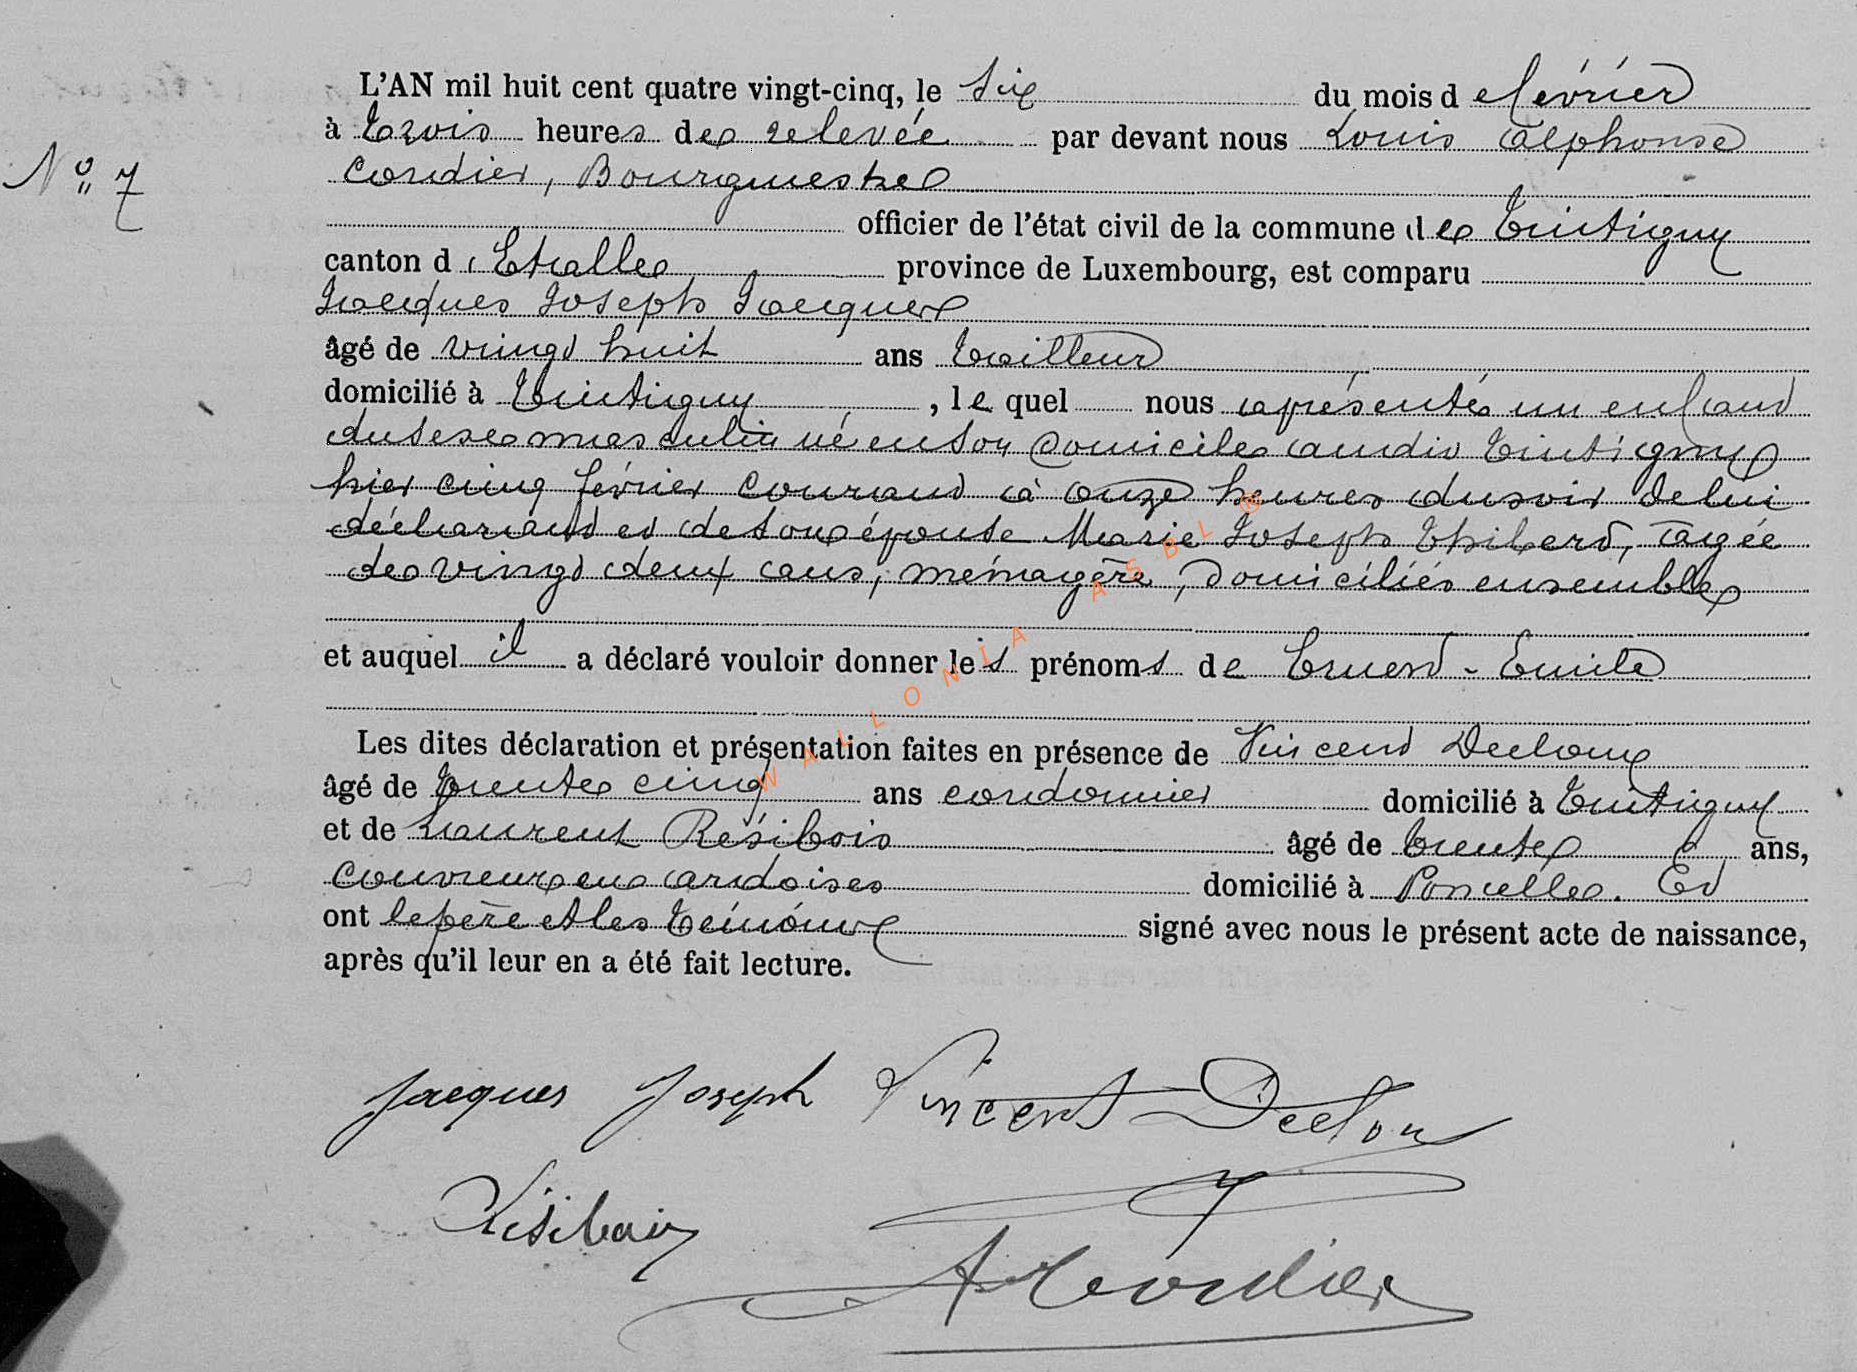 L'AN mil huit cent quatre vingt-cinq, le six du mois de février
à trois heures de relevée par devant nous Louis Alphonse
N° 7
Cordier, Bourgmestre
officier de l'état civil de la commune de Tintigny
canton d'Etalle province de Luxembourg, est comparu
Jacques Joseph Jacques
âgé de vingt huit ans tailleur
domicilié à Tintigny, le quel nous a présenté un enfant
du sexe masculin né en son domicile audit Tintigny
hier cinq février courant à onze heures du soir de lui
déclarant et de son épouse Marie Joseph Thiberd, agée
de vingt deux ans, ménagère, domiciliés ensemble
et auquel il a déclaré vouloir donner les prénoms de Ernest-Emile
Les dites déclaration et présentation faites en présence de Vincent Decloux
âgé de trente cinq ans cordonnier domicilié à Tintigny
et de Laurent Résibois âgé de trente ans,
couvreur en ardoises domicilié à Poncelle. Et
ont le père et les témoins signé avec nous le présent acte de naissance,
après qu'il leur en a été fait lecture.
Jacques Joseph Vincent Declou
Résibois
A Cordier
WALLONIA ASBL ®